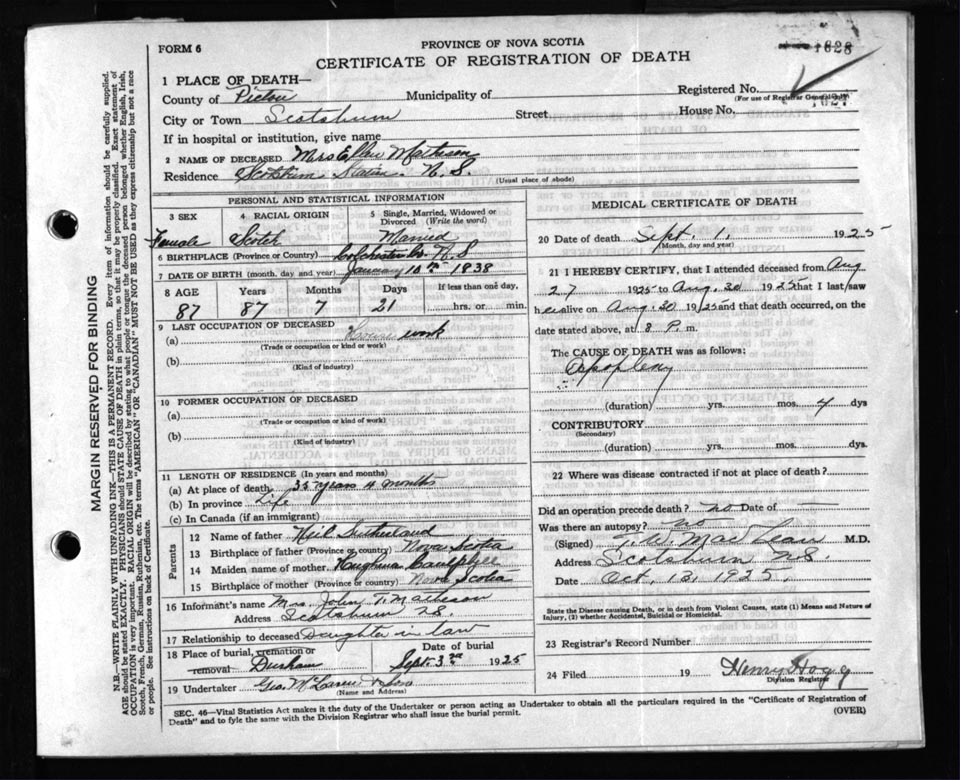 1628
FORM 6
PROVINCE OF NOVA SCOTIA
CERTIFICATE OF REGISTRATION OF DEATH
1 PLACE OF DEATH—
County of Pictou Municipality of
Registered No.
(For use of Registrar General only)
1627
City or Town Scotsburn Street House No.
If in hospital or institution, give name
2 NAME OF DECEASED Mrs Ellen Matheson
Residence Scotsburn Station N. S.
(Usual place of abode)
PERSONAL AND STATISTICAL INFORMATION
3 SEX 4 RACIAL ORIGIN 5 Single, Married, Widowed or Divorced (Write the word)
Female Scotch Married
6 BIRTHPLACE (Province or Country) Colchester Co. N. S
7 DATE OF BIRTH (month, day and year) January 10th 1838
8 AGE Years Months Days If less than one day,
87 87 7 21 hrs. or min.
9 LAST OCCUPATION OF DECEASED
(a) House work
(Trade or occupation or kind or work)
(b)
(Kind of industry)
10 FORMER OCCUPATION OF DECEASED
(a)
(Trade or occupation or kind of work)
(b)
(Kind of industry)
11 LENGTH OF RESIDENCE (In years and months)
(a) At place of death 35 years 11 months
(b) In province Life
(c) In Canada (if an immigrant)
Parents
12 Name of father Neil Sutherland
13 Birthplace of father (Province or country) Nova Scotia
14 Maiden name of mother
15 Birthplace of mother (Province or country) Nova Scotia
16 Informant's name Mrs. John T. Matheson
Address Scotsburn N.S.
17 Relationship to deceased Daughter in law
18 Place of burial, cremation or removal Durham
Date of burial
Sept. 3rd 1925
19 Undertaker Geo. McLaren & Son
(Name and Address)
MEDICAL CERTIFICATE OF DEATH
20 Date of death Sept. 1, 1925
(Month, day and year)
21 I HEREBY CERTIFY, that I attended deceased from Aug
27 1925 to Aug. 30 1925 that I last saw
her alive on Aug. 30 1925 and that death occurred, on the
date stated above, at 8 P. m.
The CAUSE OF DEATH was as follows:
Apoplexy
(duration) yrs. mos. 4 dys
CONTRIBUTORY
(Secondary)
(duration) yrs. mos. dys
22 Where was disease contracted if not at place of death?
Did an operation precede death? no Date of
Was there an autopsy? no
(Signed) T. W. MacLean M.D.
Address Scotsburn N.S
Date Oct. 13, 1925.
State the Disease causing Death, or in death from Violent Causes, state (1) Means and Nature of
Injury, (2) whether Accidental, Suicidal or Homicidal.
23 Registrar's Record Number
24 Filed 19 Henry Hogg
Division Registrar
SEC. 46—Vital Statistics Act makes it the duty of the Undertaker or person acting as Undertaker to obtain all the particulars required in the "Certificate of Registration of
Death" and to fyle the same with the Division Registrar who shall issue the burial permit.
(OVER)
MARGIN RESERVED FOR BINDING
N.B.—WRITE PLAINLY WITH UNFADING INK—THIS IS A PERMANENT RECORD. Every item of information should be carefully supplied.
AGE should be stated EXACTLY. PHYSICIANS should STATE CAUSE OF DEATH in plain terms, so that it may be properly classified. Exact statement of
OCCUPATION is very important. RACIAL ORIGIN will be described by stating to what people or tongue the deceased person belonged whether English, Irish,
Scotch, French, German, Russian, Ruthenian, etc. The terms "AMERICAN" OR "CANADIAN" MUST NOT BE USED as they express citizenship but not a race
or people. See instructions on back of Certificate.